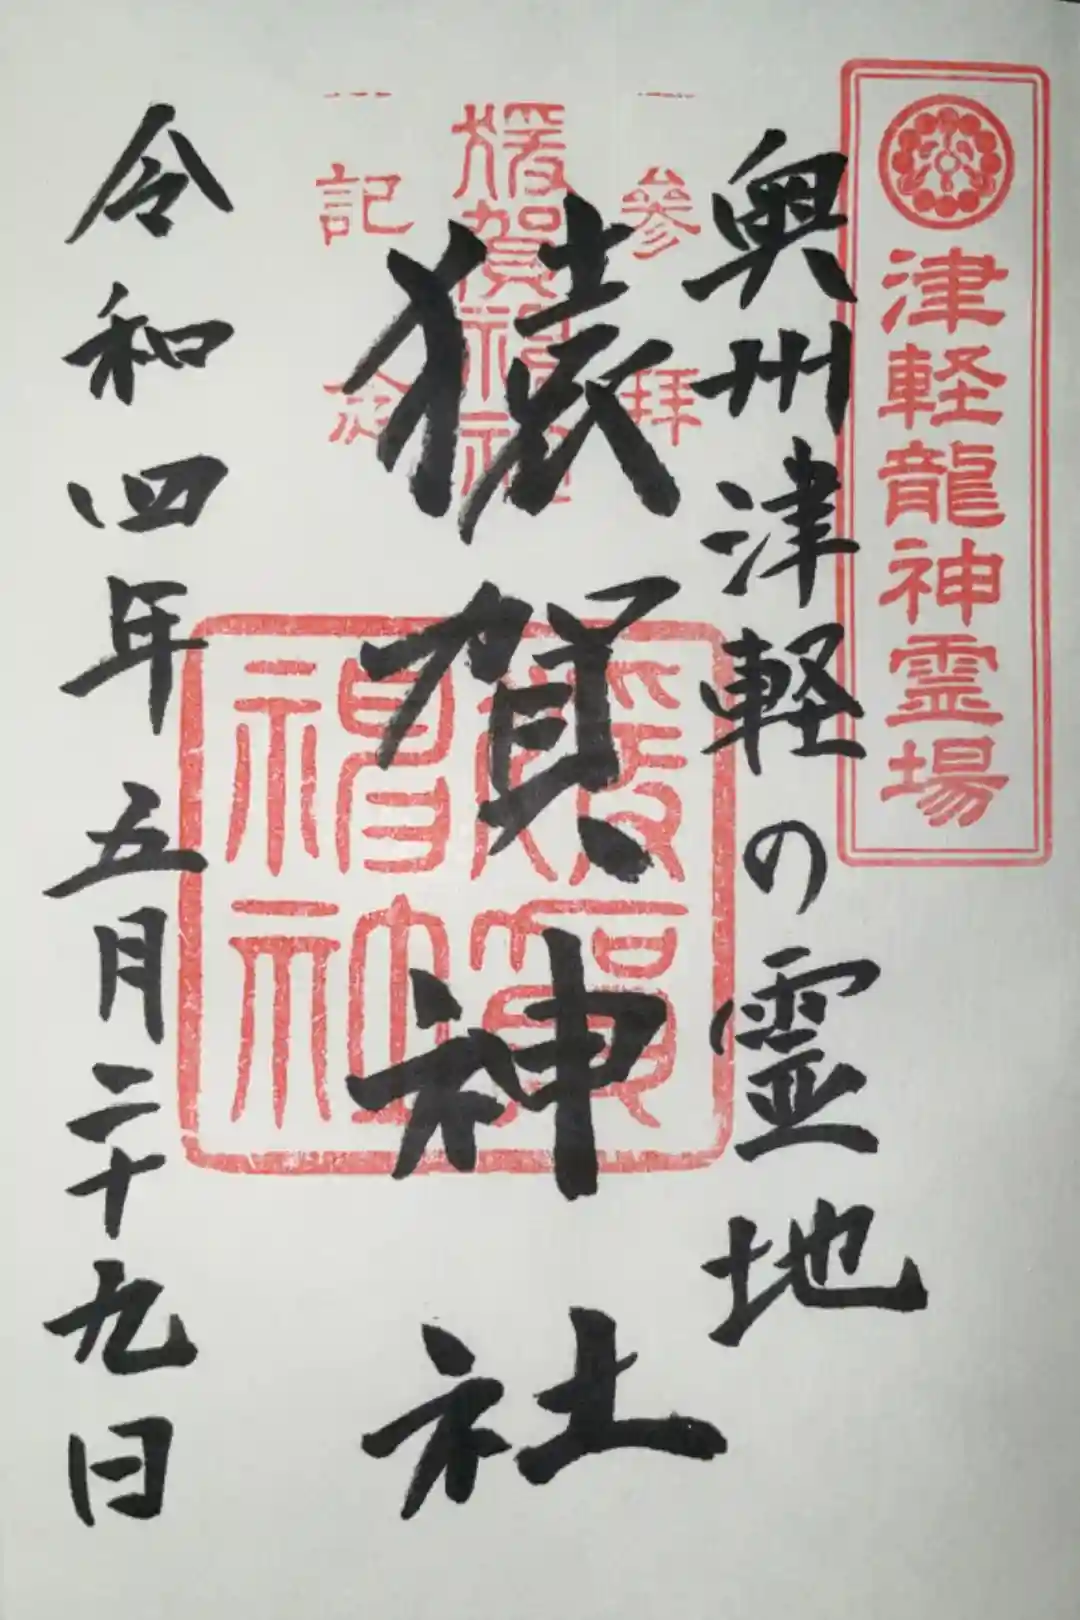 津軽龍神霊場
奥州津軽の霊地
参拝
猿賀神社
猿賀神社
記念
猿賀神社
令和四年五月二十九日